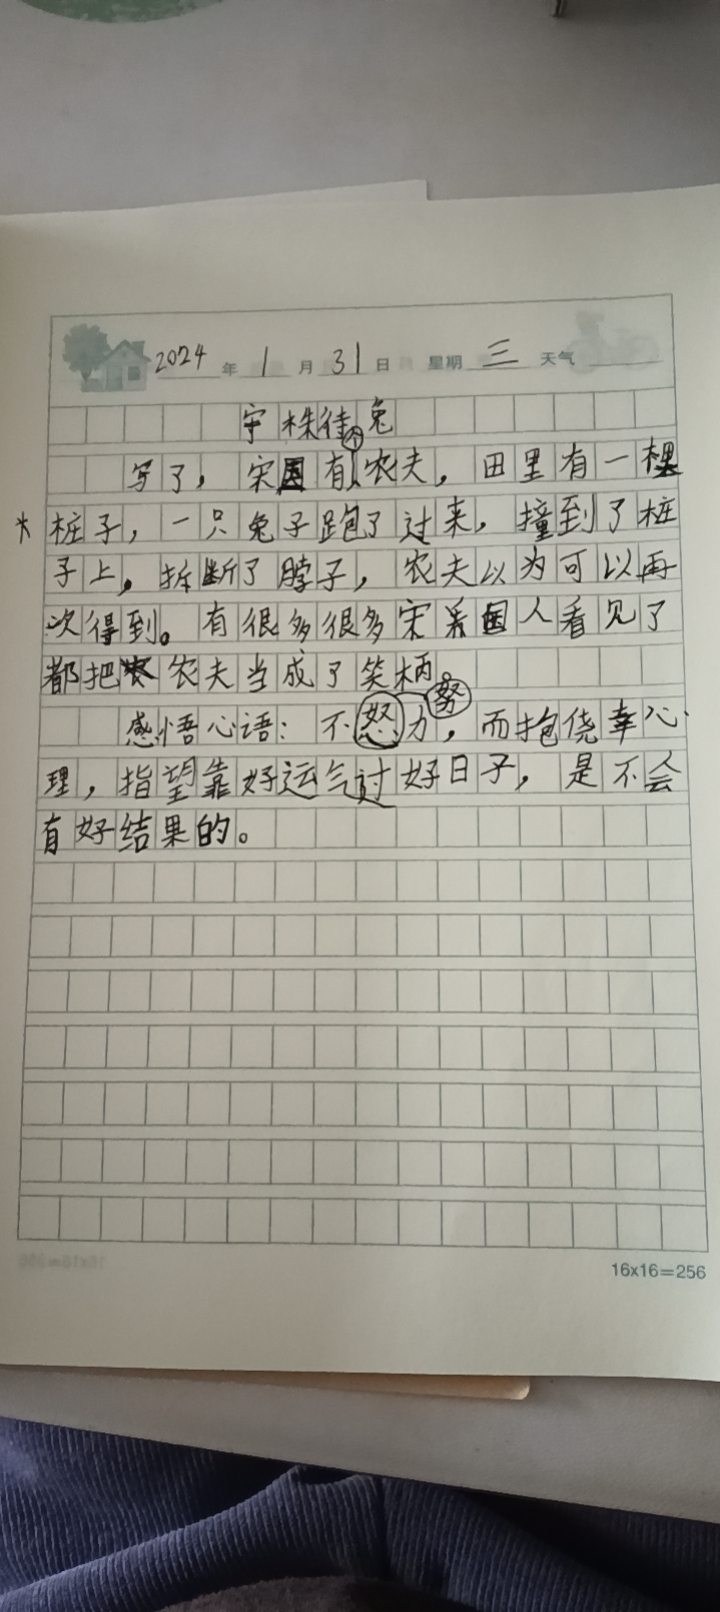 2024 年 1 月 31 日 星期 三 天气
守株待兔
写了，宋国有个农夫，田里有一棵
木桩子，一只兔子跑了过来，撞到了桩
子上，折断了脖子，农夫以为可以再
次得到。有很多很多宋国人看见了
都把农夫当成了笑柄。
感悟心语：不努力，而抱侥幸心
理，指望靠好运气过好日子，是不会
有好结果的。
16x16=256